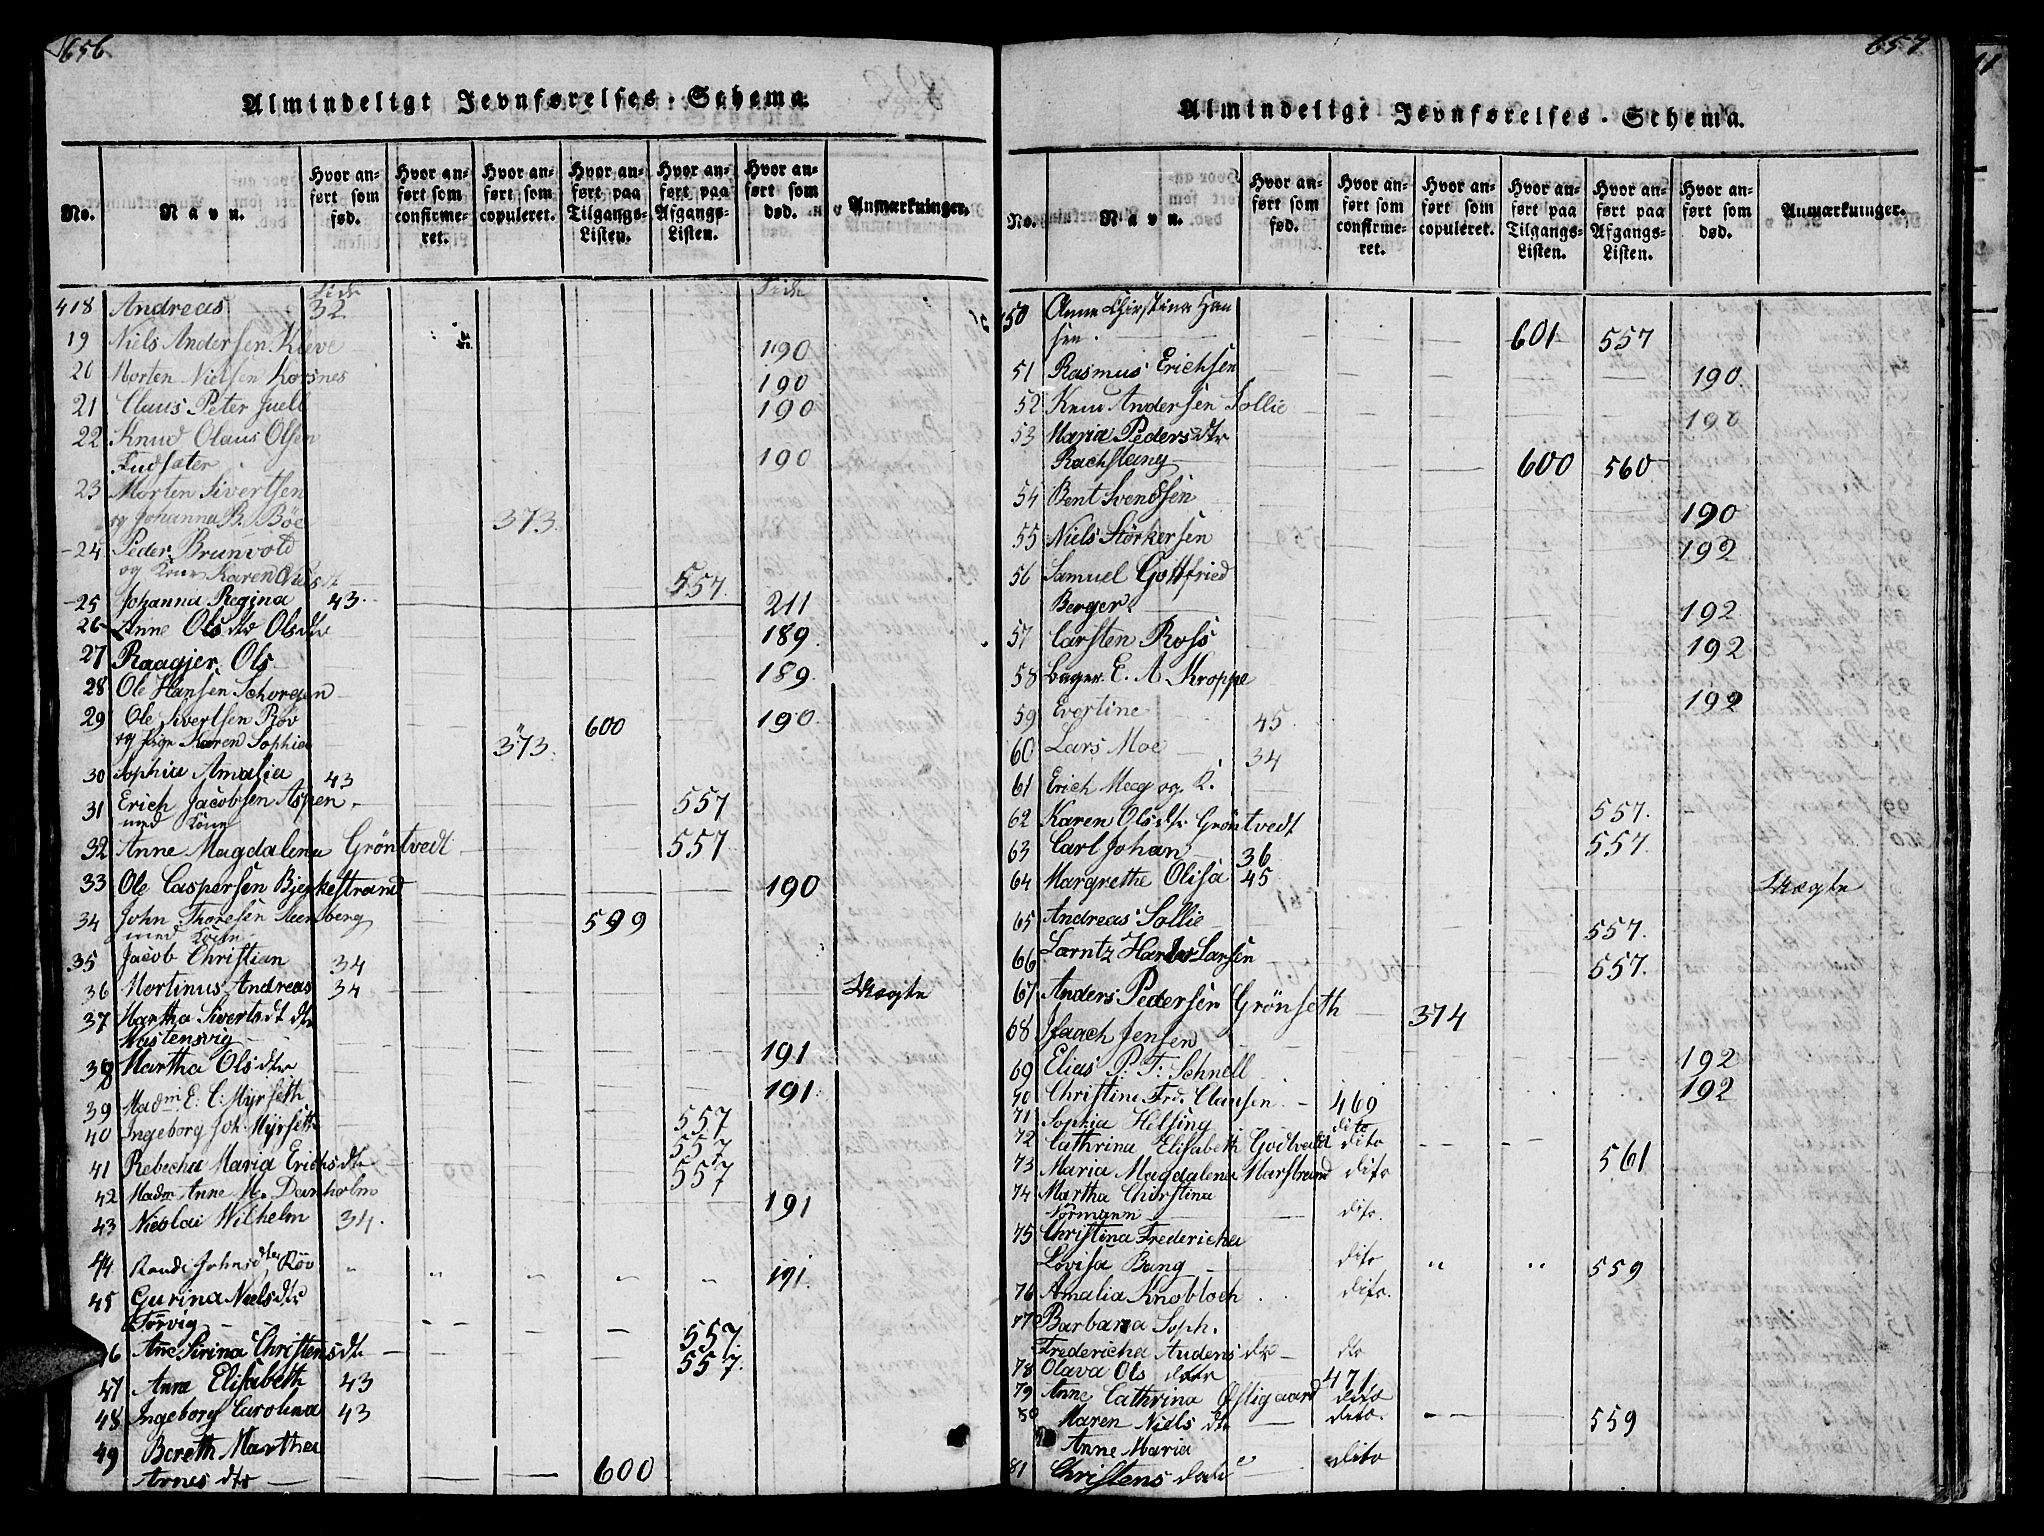 656.
Almindeligt Jevnførelses-Schema.
No.
Navn.
Hvor anført som fød.
Hvor anført som confirmeret.
Hvor anført som copuleret.
Hvor anført paa Tilgangs-Listen.
Hvor anført paa Afgangs-Listen.
Hvor anført som død.
Anmærkninger.
Side Side
418 Andreas 32
19 Niels Andersen Kleve 190
20 Morten Nielsen Korsnes 190
21 Claus Peter Juell 190
22 Knud Olaus Olsen
190
23 Morten Sivertsen
og Johanna B. Böe 373.
24 Peder Brunvold
og Kone Karen 557.
25 Johanna Regina 43. 211
26 Anne Olsdtr Olsdtr 189.
27 Raagjer Ols 189.
28 Ole Hansen Schorgen 190
29 Ole Sivertsen Röv 600
og Karen Sophia 373.
30 Sophia Amalia 43
31 Erich Jacobsen Aspen 557
med Kone
32 Anne Magdalena Gröntvedt 557
33 Ole Caspersen Bjerkestrand 190
34 John Thoresen Steensberg 599
med Kone
35 Jacob Christian 34
36 Martinus Andreas 34
37 Martha Siverts dtr
Wastensvig 191
38 Martha Olsdtr 191.
39 Madm E. C. Myrseth 557
40 Ingeborg Joh. Myrseth 557
41 Rebecha Maria Erichsdtr 557
42 Madm Anne M. Danholm 191
43 Nicolai Wilhelm 34.
44 Randi Johnsdtr Röv " " " " " 191.
45 Gurina Nielsdtr
Törvig 557.
46 Ane Sirina Christensdtr 557.
47 Anna Elisabeth 43
48 Ingeborg Carolina 43
49 Bereth Martha
Arnes dtr 600
657
Almindeligt Jevnførelses-Schema.
No.
Navn.
Hvor anført som fød.
Hvor anført som confirmeret.
Hvor anført som copuleret.
Hvor anført paa Tilgangs-Listen.
Hvor anført paa Afgangs-Listen.
Hvor anført som død.
Anmærkninger.
450 Anne Christina Han
sen. 601 557
51 Rasmus Erichsen 190.
52 Knud Andersen Sollie 190
53 Maria Pedersdtr
Rachstang 600 560
54 Bent Svendsen 190
55 Niels Störkersen 192
56 Samuel Gottfried
Berger 192
57 Carsten Ross 192
58 Bager E. A. Kroppe 192
59 Evertine 45
60 Lars Moe 34
61 Erich Moeg og K. 557.
62 Karen Olsdtr Gröntvedt 557.
63 Carl Johan 36
64 Margrethe Olisa 45
65 Andreas Sollie 557.
66 Larntz Harder Larsen 557.
67 Anders Pedersen Grönseth 374
68 Isaach Jensen 192
69 Elias P. F. Schnell 192
70 Christine Frd. Clausen 469
71 Sophia Helsing dito
72 Cathrina Elisabeth Godtvedt dito 561
73 Maria Magdalena Marstrand dito
74 Martha Christina
Normann dito.
75 Christina Fredericha
Lovisa Bang dito " " 559
76 Amalia Knobloch dito.
77 Barbara Soph.
Fredericha Andens dtr dto
78 Olava Ols datr 471
79 Anne Cathrina Östigaard dito
80 Maren Niels dtr dito. 559
Anne Maria
81 Christens datr dito